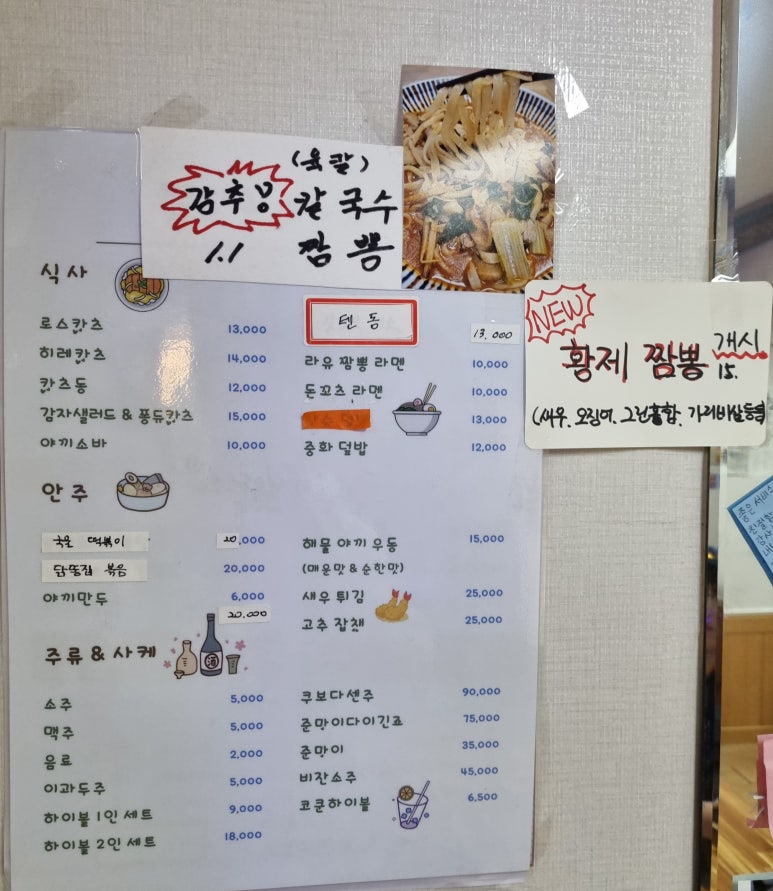 (육칼)
강추!
칼국수
1.1
짬뽕
NEW
황제 짬뽕 개시
15.
(새우, 오징어, 그린홍합, 가리비살 등등)
식사
로스캇츠 13,000
히레캇츠 14,000
캇츠동 12,000
감자샐러드 & 퐁듀캇츠 15,000
야끼소바 10,000
텐동 13.000
라유 짬뽕 라멘 10,000
돈꼬츠 라멘 10,000
13,000
중화 덮밥 12,000
안주
국물 떡볶이 20,000
닭똥집 볶음 20,000
야끼만두 6,000
20.000
해물 야끼 우동 15,000
(매운맛 & 순한맛)
새우 튀김 25,000
고추 잡채 25,000
주류 & 사케
酒
소주 5,000
맥주 5,000
음료 2,000
이과두주 5,000
하이볼 1인 세트 9,000
하이볼 2인 세트 18,000
쿠보다센주 90,000
준망이다이긴죠 75,000
준망이 35,000
비잔소주 45,000
코쿤하이볼 6,500
좋은 서비스